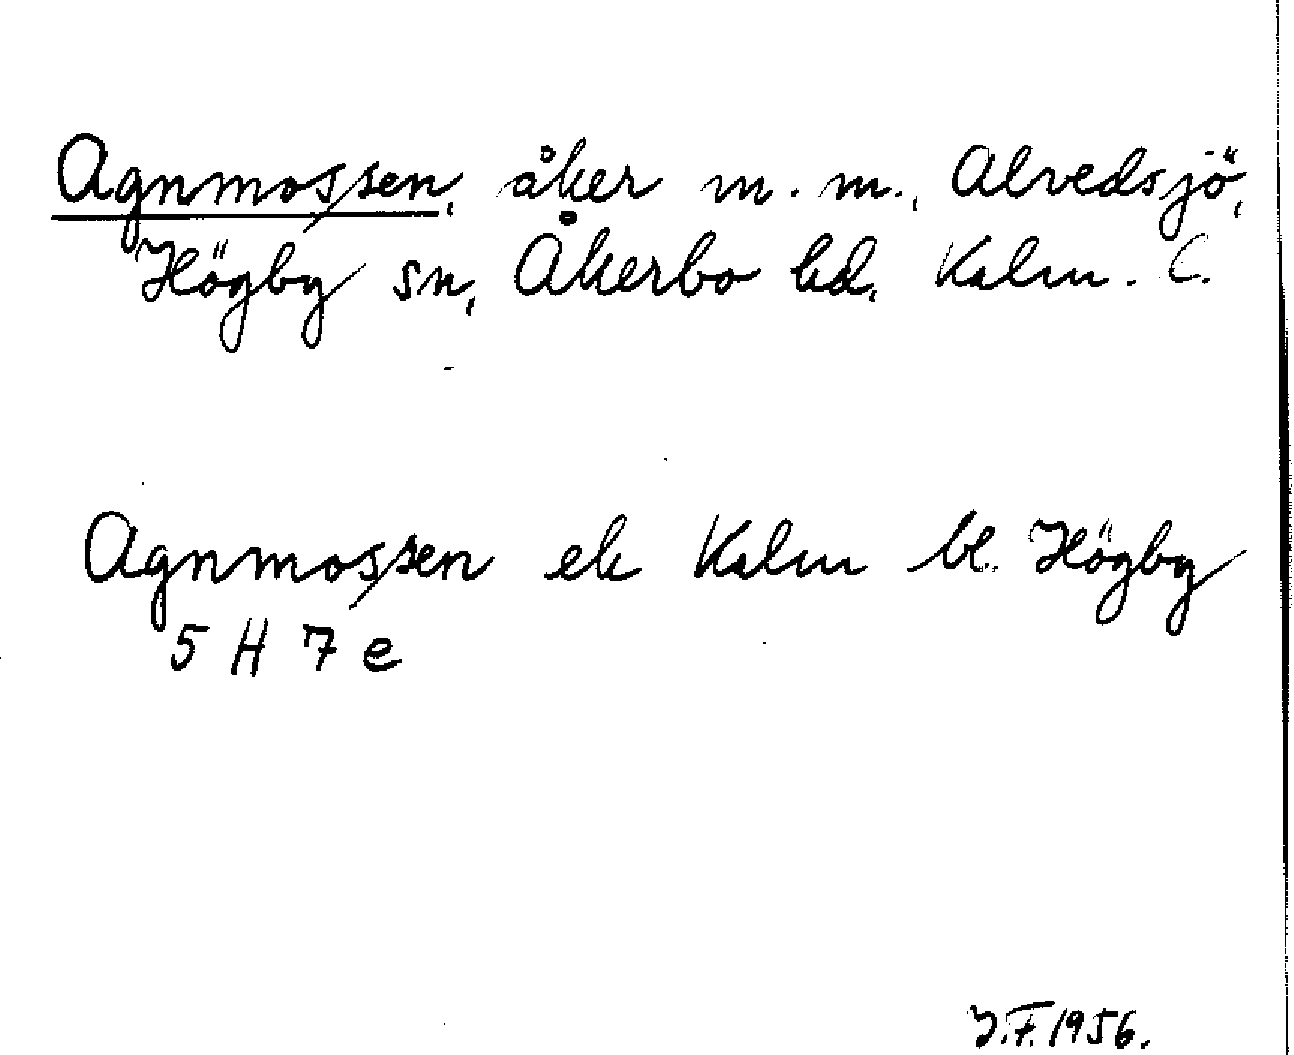 Agnmossen, åker m. m., Alvedsjö,
Högby sn, Åkerbo hd, Kalm. l.
Agnmossen ek Kalm bl Högby
5 H 7 e
J.F. 1956.